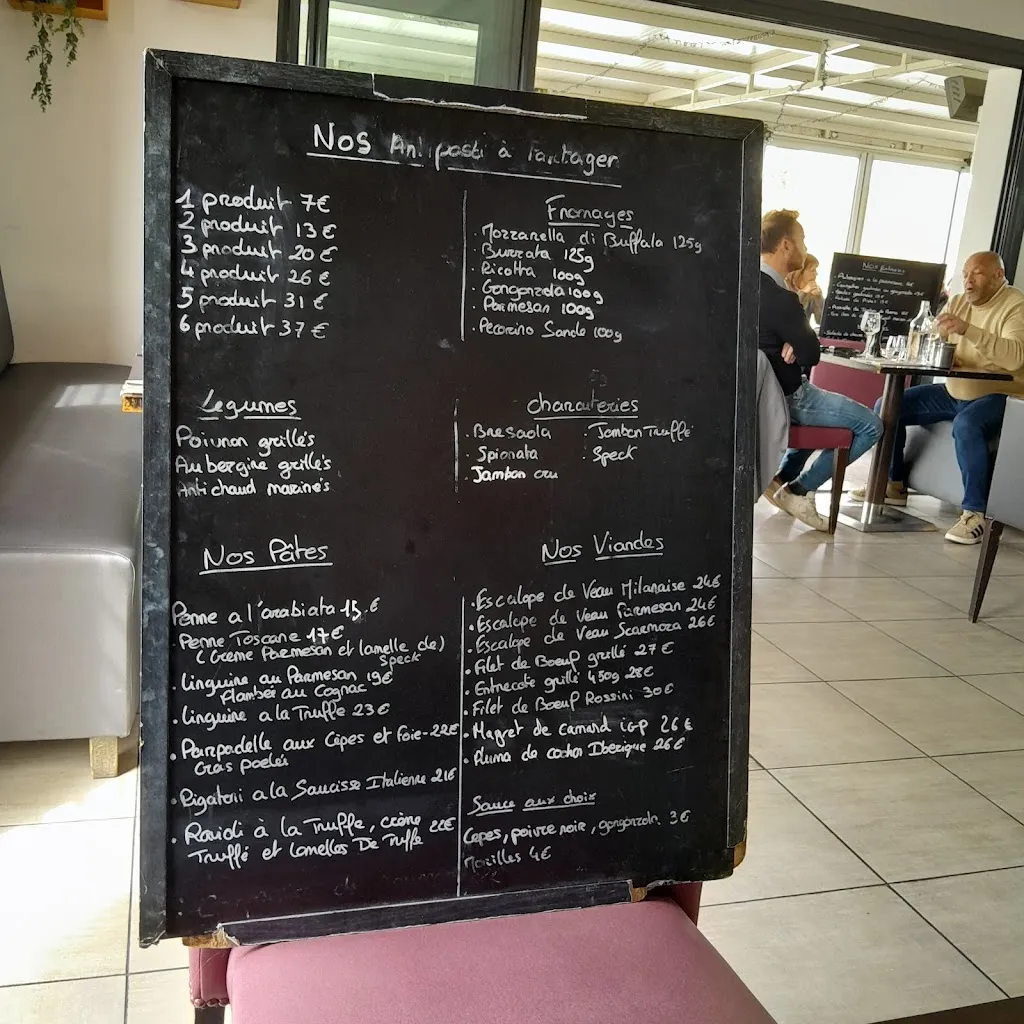 Nos Antipasti à Partager
1 produit 7€
2 produit 13€
3 produit 20€
4 produit 26€
5 produit 31€
6 produit 37€
Fromages
. Mozzarella di Buffala 125g
. Burrata 125g
. Ricotta 100g
. Gongonzola 100g
. Parmesan 100g
. Pecorino Sarde 100g
Légumes
Poivron grillés
Aubergine grillés
Antichaud marinés
Charcuteries
. Bresaola
. Spianata
. Jambon cru
. Jambon Truffe
. Speck
Nos Pâtes
Penne a l'arabiata 15 €
Penne Toscane 17€
(Crème Parmesan et lamelle de)
speck
. Linguine au Parmesan 19€
Flambée au Cognac
. Linguine a la Truffe 23€
. Parpadelle aux Cèpes et Foie-22€
Gras poelés
. Rigatoni a la Saucisse Italienne 21€
. Ravioli à la Truffe, crème 22€
Truffé et lamelles De Truffe
Nos Viandes
. Escalope de Veau Milanaise 24€
. Escalope de Veau Parmesan 24€
. Escalope de Veau Scarmoza 26€
. Filet de Boeuf grillé 27€
. Entrecote grillé 450g 28€
. Filet de Boeuf Rossini 30€
. Magret de canard IGP 26€
. Pluma de cochon Ibérique 26€
Sauce aux choix
Cepes, poivre noir, gorgonzola 3€
Morilles 4€
Nos Entrées